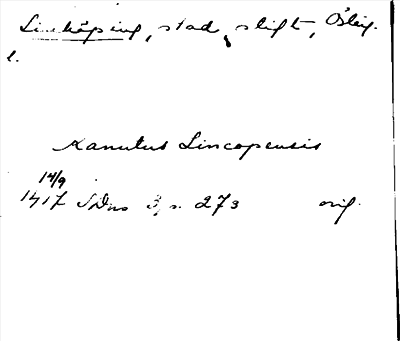 Linköping, stad, stift, Östg.
l.
Kanutus Lincopensis
14/9
1417 SDns 3, s. 273 orig.